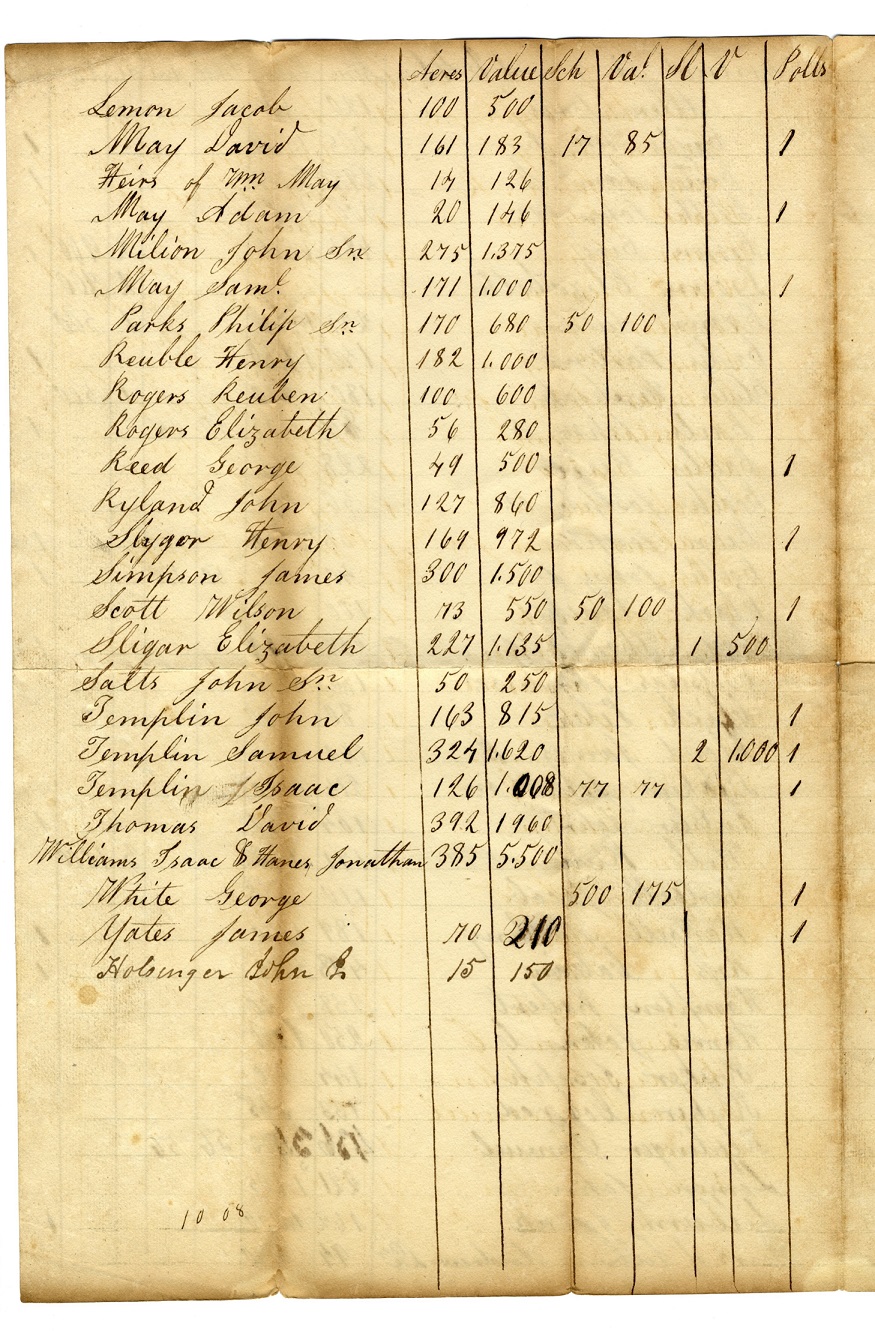 Acres Value Sch Val. Sl V Polls
Lemon Jacob 100 500
May David 161 183 17 85 1
Heirs of Wm May 17 126
May Adam 20 146 1
Milion John Sr 275 1.375
May Saml. 171 1.000 1
Parks Philip Sr 170 680 50 100
Reuble Henry 182 1.000
Rogers Reuben 100 600
Rogers Elizabeth 56 280
Reed George 49 500 1
Ryland John 127 860
Slygor Henry 169 972 1
Simpson James 300 1.500
Scott Wilson 73 550 50 100 1
Sligar Elizabeth 227 1.135 1 500
Salts John Sr 50 250
Templin John 163 815 1
Templin Samuel 324 1.620 2 1.000 1
Templin Isaac 126 1.008 77 77 1
Thomas David 392 1960
Williams Isaac & Hanes Jonathan 385 5.500
White George 500 175 1
Yates James 70 210 1
Holsinger John 15 150
10 08